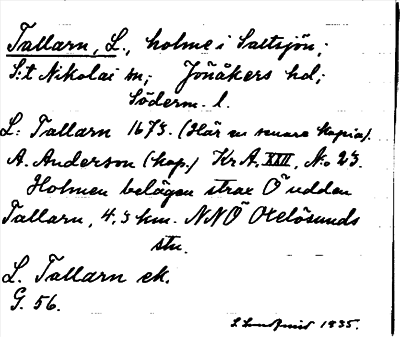 Tallarn, L., holme i Saltsjön;
S:t Nikolai sn; Jönåkers hd;
Söderm. l.
L: Tallarn 1673. (Här en senare kopia).
A. Anderson (kop.) KrA, XXII, No 23.
Holmen belägen strax Ö udden
Tallarn, 4.3 km. NNÖ Oxelösunds
stn.
L. Tallarn ek.
G. 56.
1935.